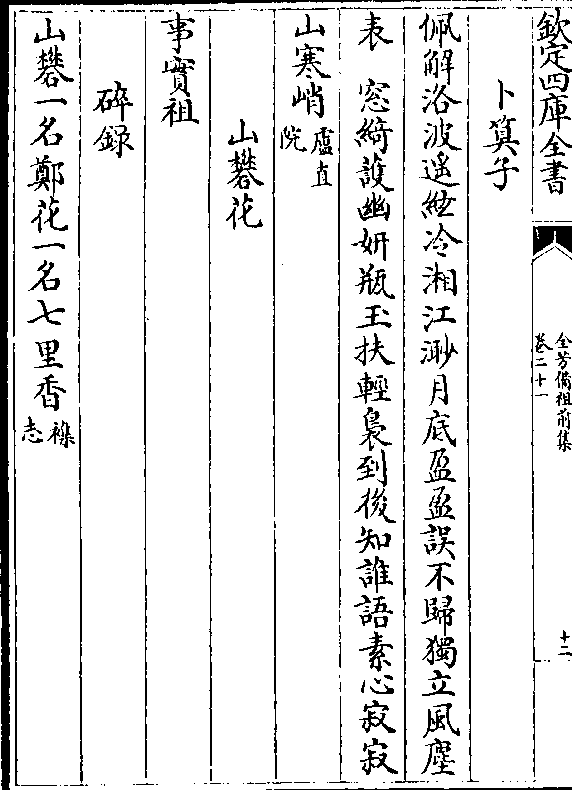 欽定四庫全書
全芳備祖前集
卷二十一
十二
卜算子
佩解洛波遥絃冷湘江渺月底盈盈誤不歸獨立風塵
表　窓綺䕶幽妍瓶玉扶輕裊到後知誰語素心寂寂
山寒峭盧直院
山礬花
事實祖
碎録
山礬一名鄭花一名七里香襍志